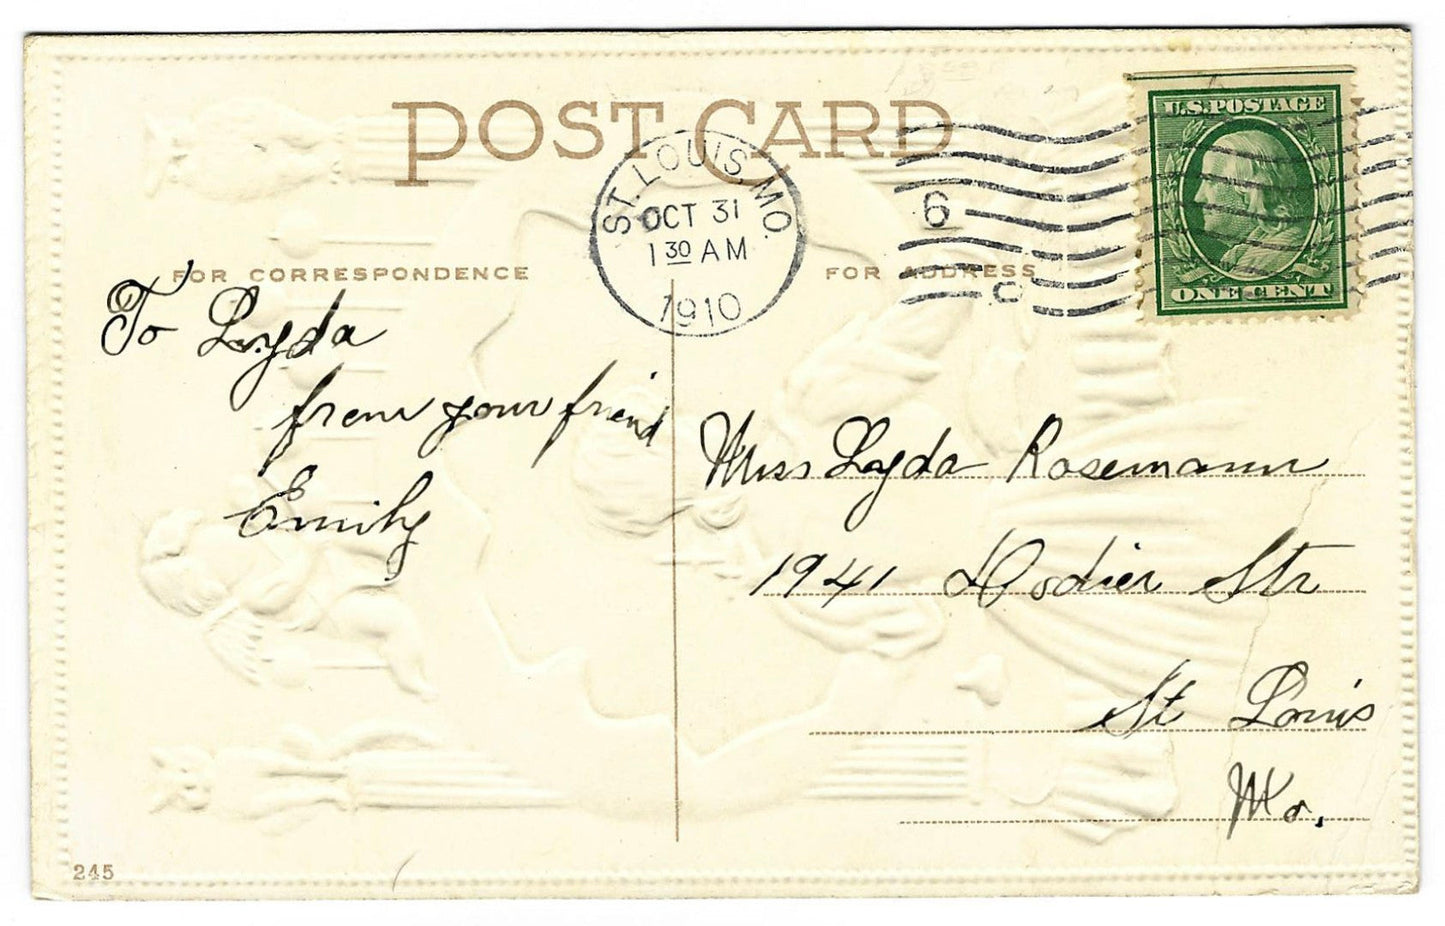 POST CARD
U.S. POSTAGE
ONE CENT
ST. LOUIS MO.
OCT 31
1 30 AM
1910
6
C
FOR CORRESPONDENCE
FOR ADDRESS
To Lyda
from your friend
Emily
Miss Lyda Rosemann
1941 Dodier Str
St Louis
Mo.
245